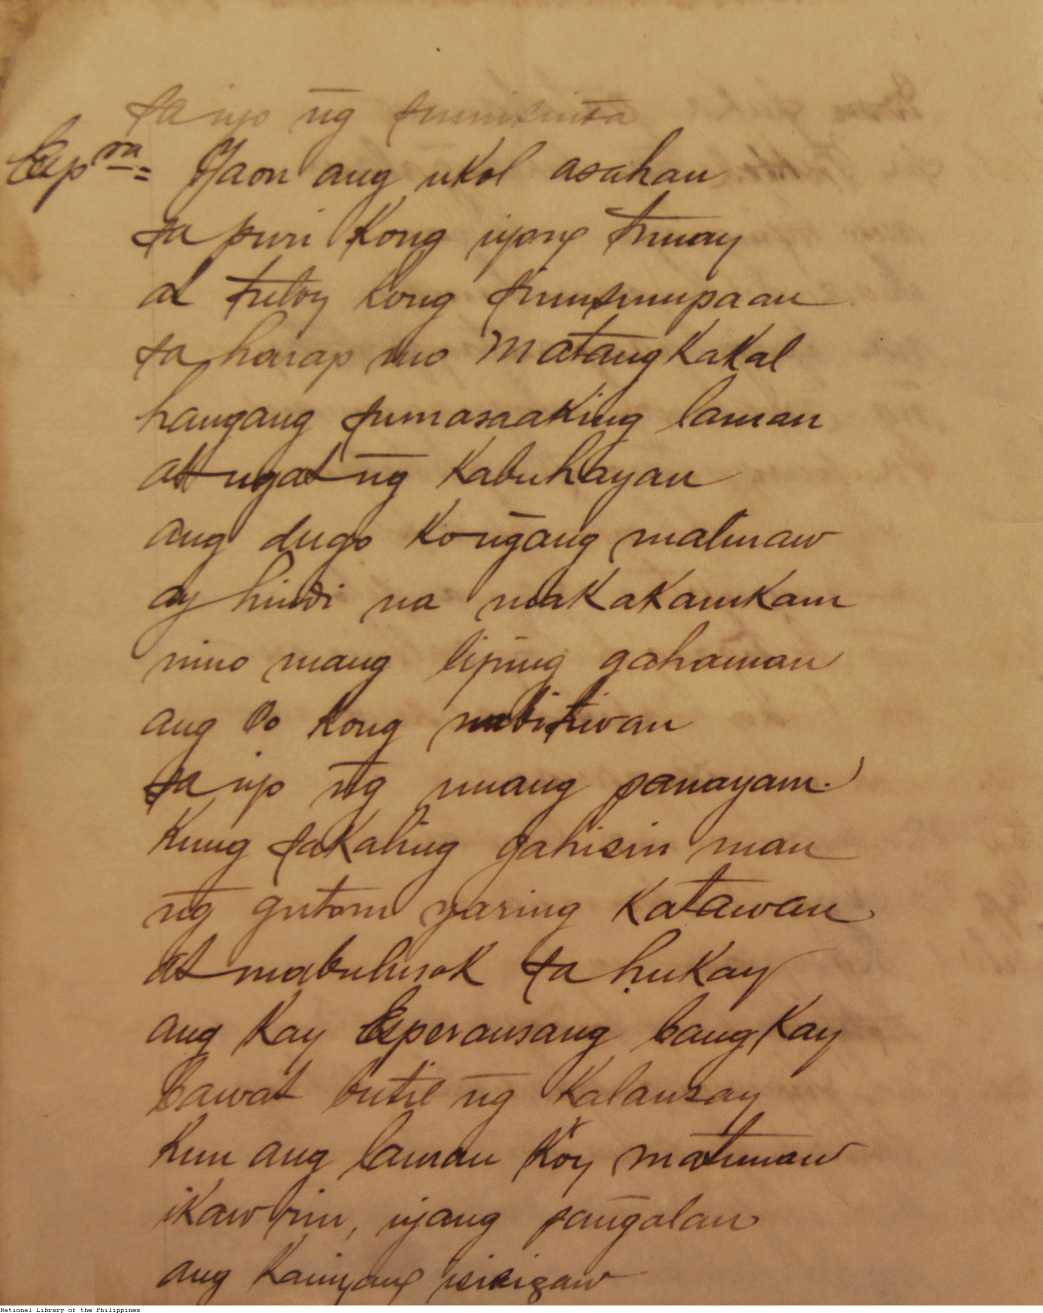 sa iyo ng sumisinta
Espra= Yaon ang ukol asahan
sa puri kong iyong tunay
at tuloy kong sinusumpaan
sa harap mo Matangkakal
hangang sumasaaking laman
at ugat n̄g kabuhayan
ang dugo kon̄gang malinaw
ay hindi na makakamkam
nino mang liping gahaman
ang Oo kong nabitiwan
sa iyo n̄g unang panayam.
Kung sakaling gahisin man
n̄g gutom yaring katawan
at mabulusok sa hukay
ang kay Esperansang bangkay
bawat butil n̄g kalansay
kun ang laman ko'y matunaw
ikaw rin, iyang pan̄galan
ang kaniyang isisigaw
National Library of the Philippines